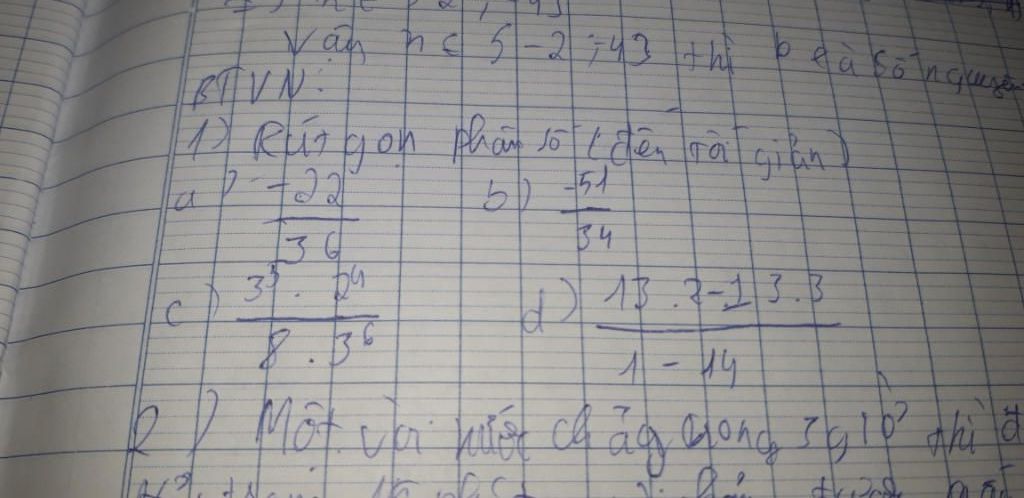 Vậy n ∈ { -2; -43 thì b là số nguyên
BTVN:
1) Rút gọn phân số (đến tối giản)
a) -22/36 b) -51/34
c) 3³ . 2⁴ / 8 . 3⁶ d) 13 . 2 - 13 . 3 / 1 - 14
2) Một vòi nước chảy trong 3 giờ thì đ